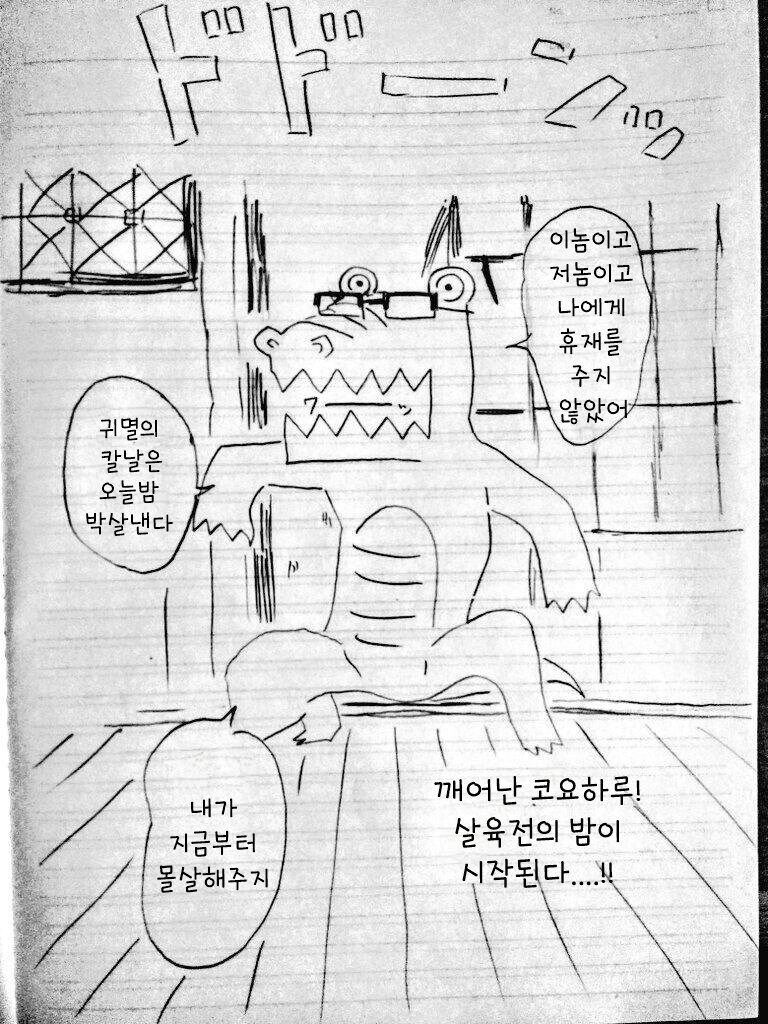 ドドーン
이놈이고
저놈이고
나에게
휴재를
주지
않았어
귀멸의
칼날은
오늘밤
박살낸다
ワーッ
내가
지금부터
몰살해주지
깨어난 코요하루!
살육전의 밤이
시작된다....!!